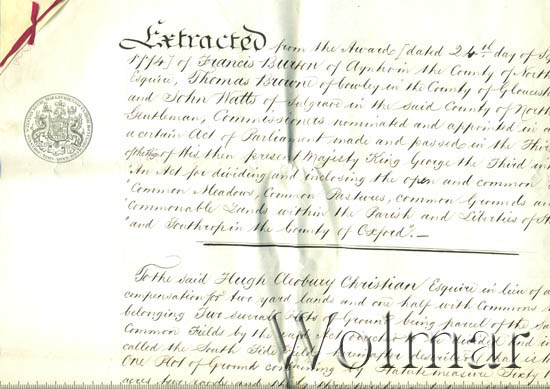 Extracted from the Award [dated 24th day of
1774] of Francis Burton of Aynho in the County of North
Esquire, Thomas Brown of Cowley in the County of Glouces
and John Watts of Sulgrave in the said County of North
Gentleman, Commissioners nominated and appointed in a
a certain Act of Parliament made and passed in the Thir
of the Reign of His then present Majesty King George the Third in
"An Act for dividing and inclosing the open and common
"Common Meadows, Common Pastures, common Grounds an
"Commonable Lands within the Parish and Liberties of
"and Southrop in the County of Oxford". —
To the said Hugh Cleobury Christian Esquire in lieu of a
compensation for two yard lands and one half with Commons
belonging Two several Plots of Ground being parcel of the
Common Fields by the said Act
called the South Side
One Plot of Ground containing by Statute measure Sixty
acres two roods and
Wolmar